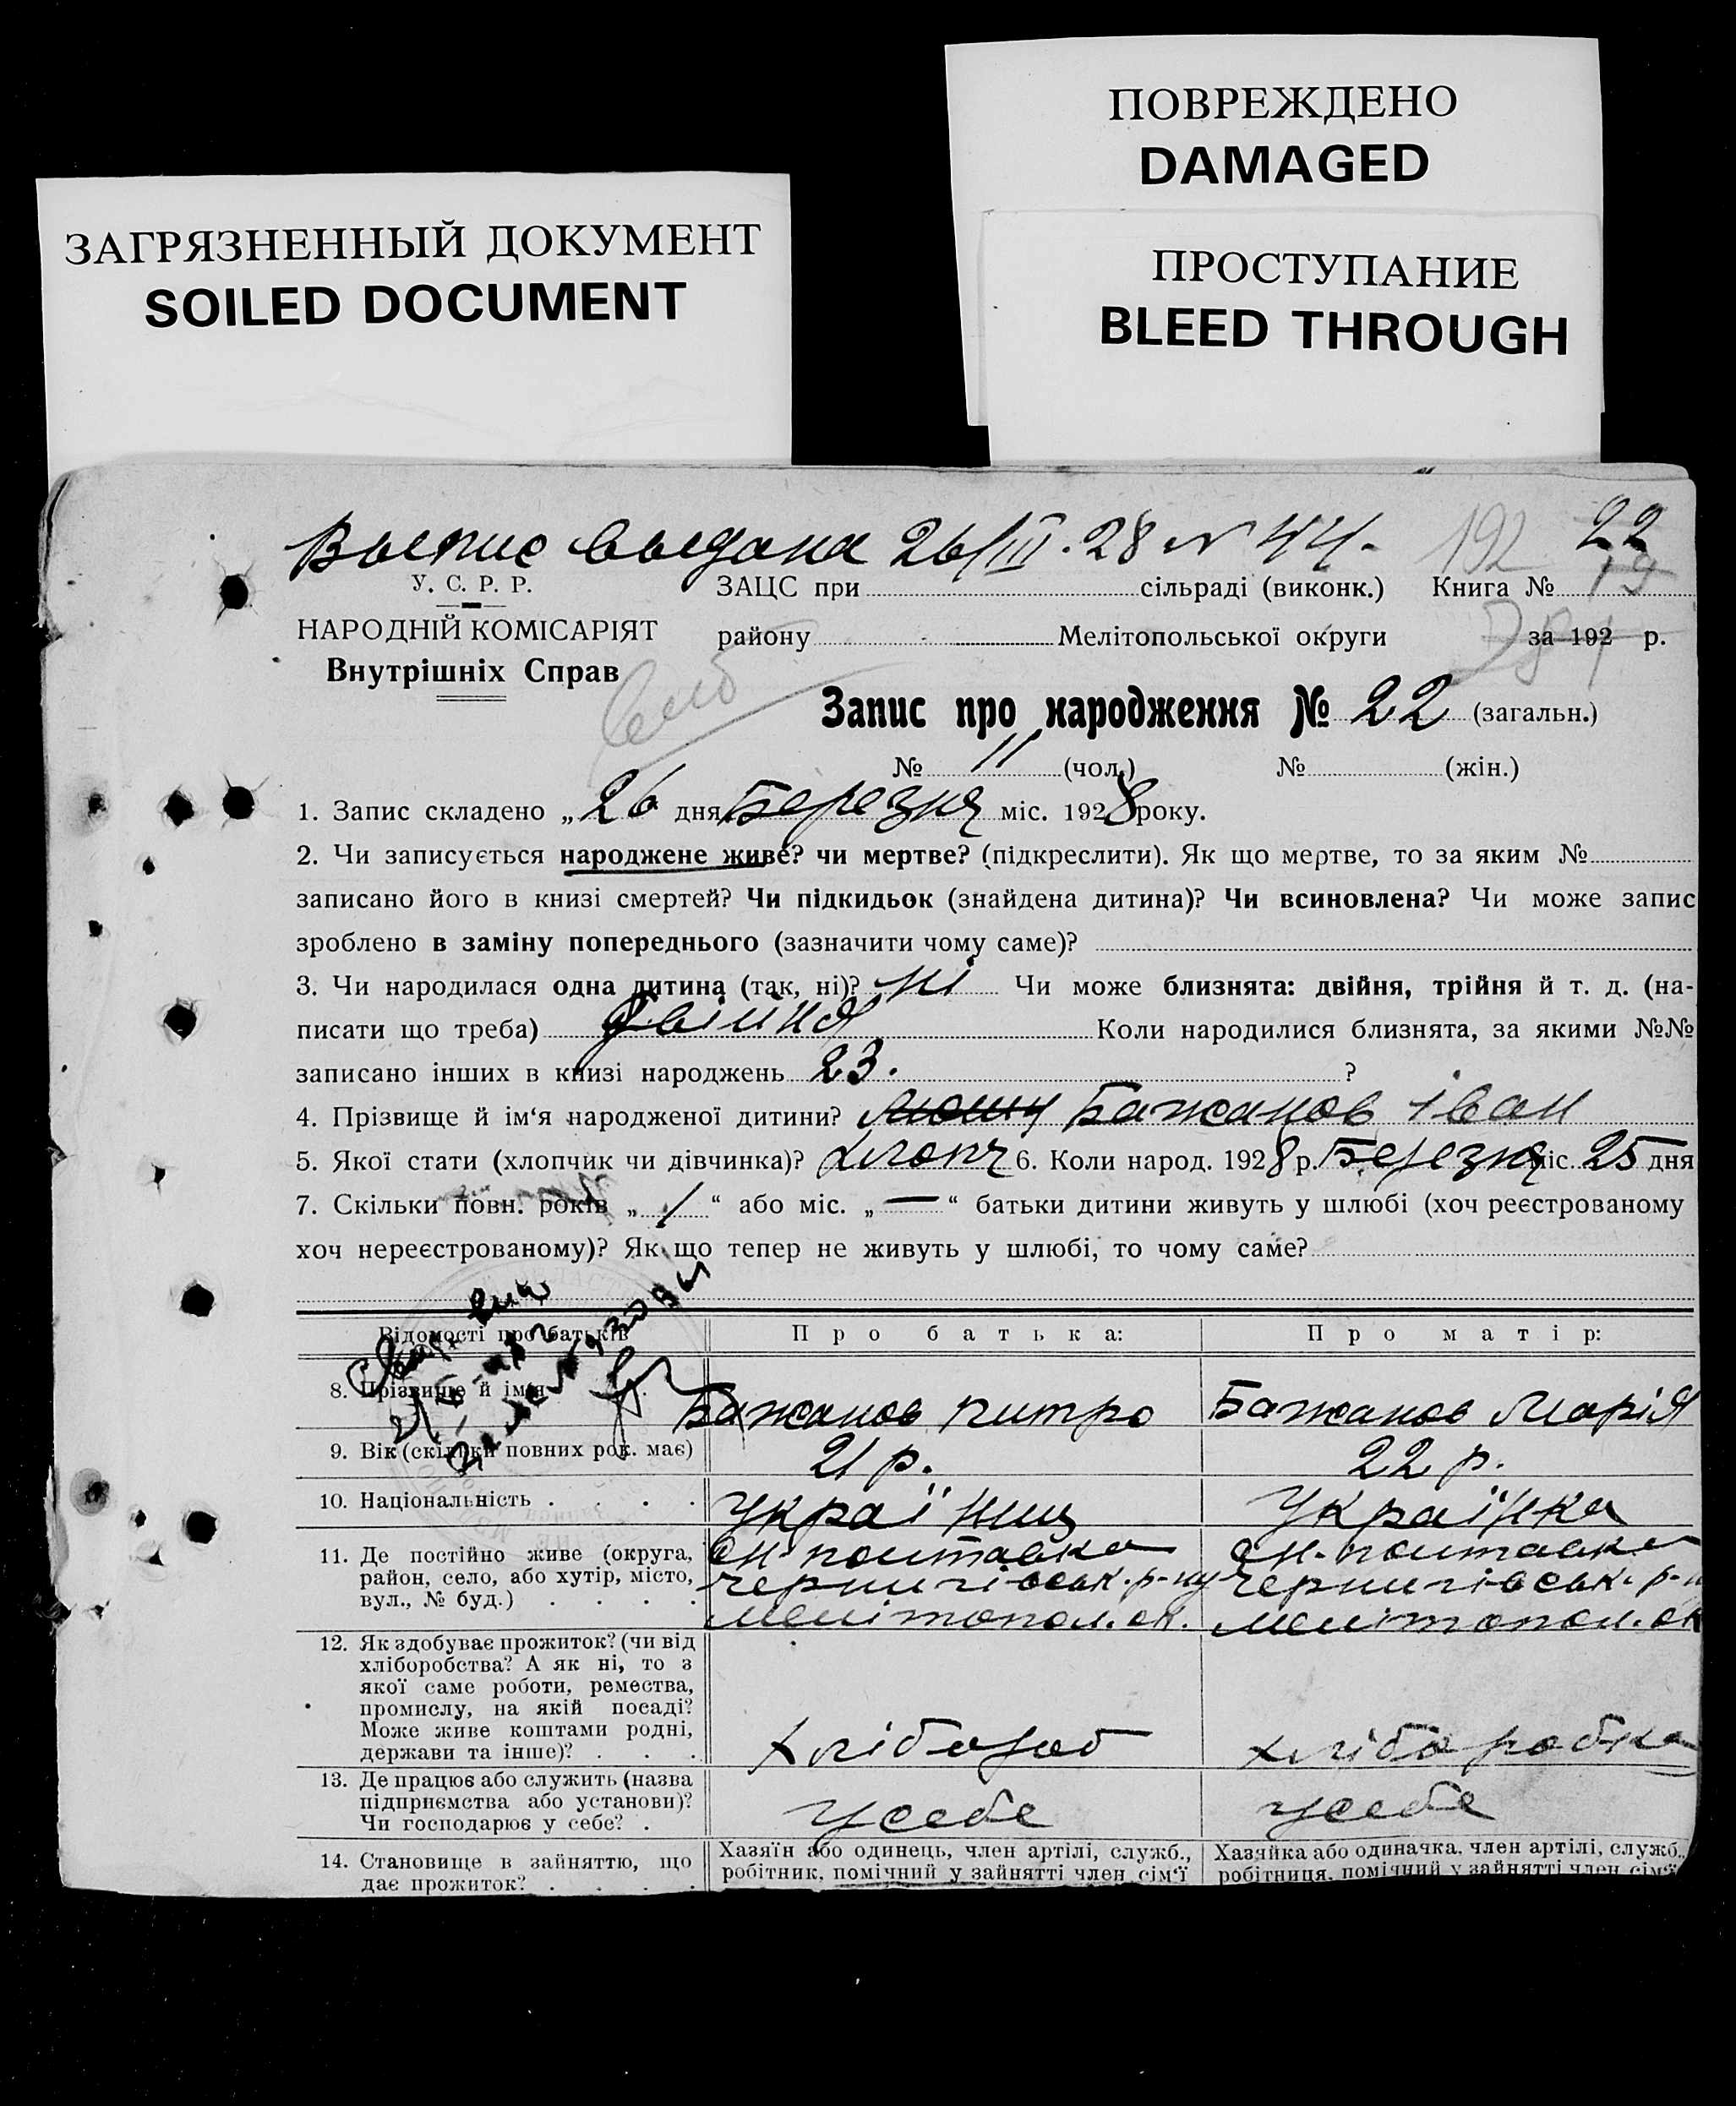 ПОВРЕЖДЕНО
DAMAGED
ЗАГРЯЗНЕННЫЙ ДОКУМЕНТ
SOILED DOCUMENT
ПРОСТУПАНИЕ
BLEED THROUGH
Выпис выдана 26/III.28 N 44.
192
22
19
У. С. Р. Р.
ЗАЦС при сільраді (виконк.) Книга №
НАРОДНІЙ КОМІСАРІЯТ
району Мелітопольської округи за 192 р.
Внутрішніх Справ
Запис про народження № 22 (загальн.)
№ 11 (чол.) № (жін.)
1. Запис складено „ 26 дня Березня міс. 1928 року.
2. Чи записується народжене живе? чи мертве? (підкреслити). Як що мертве, то за яким №
записано його в книзі смертей? Чи підкидьок (знайдена дитина)? Чи всиновлена? Чи може запис
зроблено в заміну попереднього (зазначити чому саме)?
3. Чи народилася одна дитина (так, ні)? ні Чи може близнята: двійня, трійня й т. д. (на-
писати що треба) двійня Коли народилися близнята, за якими №№
записано інших в книзі народжень 23. ?
4. Прізвище й ім'я народженої дитини? Бажанов Іван
5. Якої стати (хлопчик чи дівчинка)? хлопч 6. Коли народ. 1928 р. Березня міс. 25 дня
7. Скільки повн. років „ 1 “ або міс. „ — “ батьки дитини живуть у шлюбі (хоч реєстрованому
хоч нереєстрованому)? Як що тепер не живуть у шлюбі, то чому саме?
Відомості про батьків
Про батька:
Про матір:
8. Прізвище й ім'я
Бажанов Митро
Бажанов Марія
9. Вік (скільки повних рок. має)
21 р.
22 р.
10. Національність . . . .
Українц
Українка
11. Де постійно живе (округа,
район, село, або хутір, місто,
вул., № буд.) . . . .
Чернигівськ. р-ну
Мелітопол. ок.
Чернигівськ. р-н
Мелітопол. ок
12. Як здобуває прожиток? (чи від
хліборобства? А як ні, то з
якої саме роботи, ремества,
промислу, на якій посаді?
Може живе коштами родні,
держави та інше)? . . .
Хлібороб
хлiборобка
13. Де працює або служить (назва
підприємства або установи)?
Чи господарює у себе? .
у себе
у себе
14. Становище в зайняттю, що
дає прожиток? . . . .
Хазяїн або одинець, член артілі, служб.,
робітник, помічний у зайнятті член сім'ї
Хазяйка або одиначка, член артілі, служб.,
робітниця, помічний у зайнятті член сім'ї